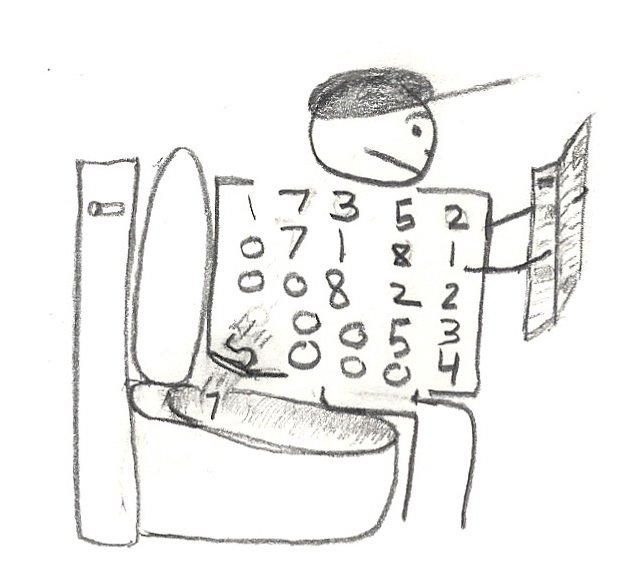 1 7 3 5 2
0 7 1 8 1
0 0 8 2 2
0 0 5 3
5 0 0 0 4
7